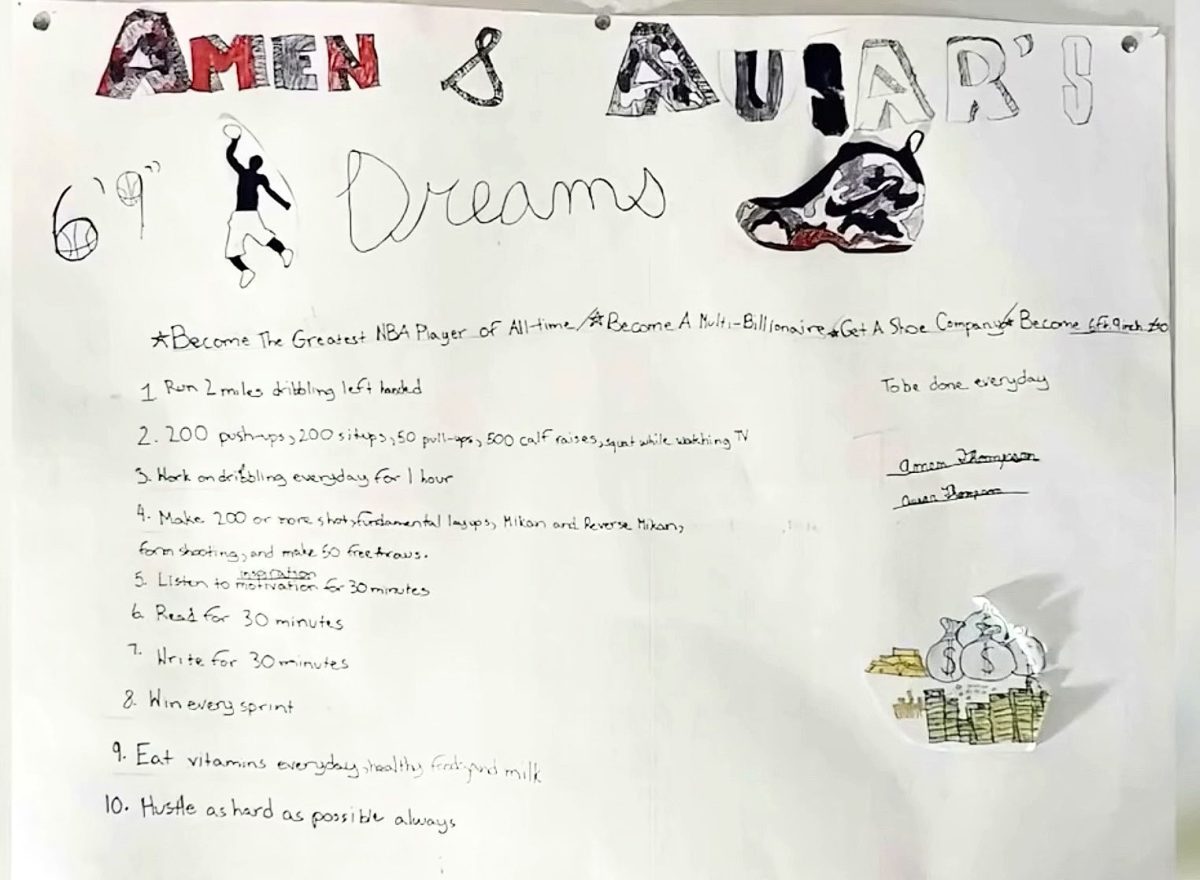 AMEN & AUSAR'S
6'9" Dreams
☆Become The Greatest NBA Player of All-time/☆Become A Multi-Billionaire☆Get A Shoe Company☆Become 6ft. 9inch
1 Run 2 miles dribbling left handed
To be done everyday
2. 200 push-ups, 200 situps, 50 pull-ups, 500 calf raises, squat while watching TV
Amen Thompson
3. Work on dribbling everyday for 1 hour
Ausar Thompson
4. Make 200 or more shots, fundamental layups, Mikan and Reverse Mikan,
form shooting, and make 50 free throws.
inspiration
5. Listen to motivation for 30 minutes
6. Read for 30 minutes
7. Write for 30 minutes
8. Win every sprint
9. Eat vitamins everyday, healthy food, and milk
10. Hustle as hard as possible always
$ $ $